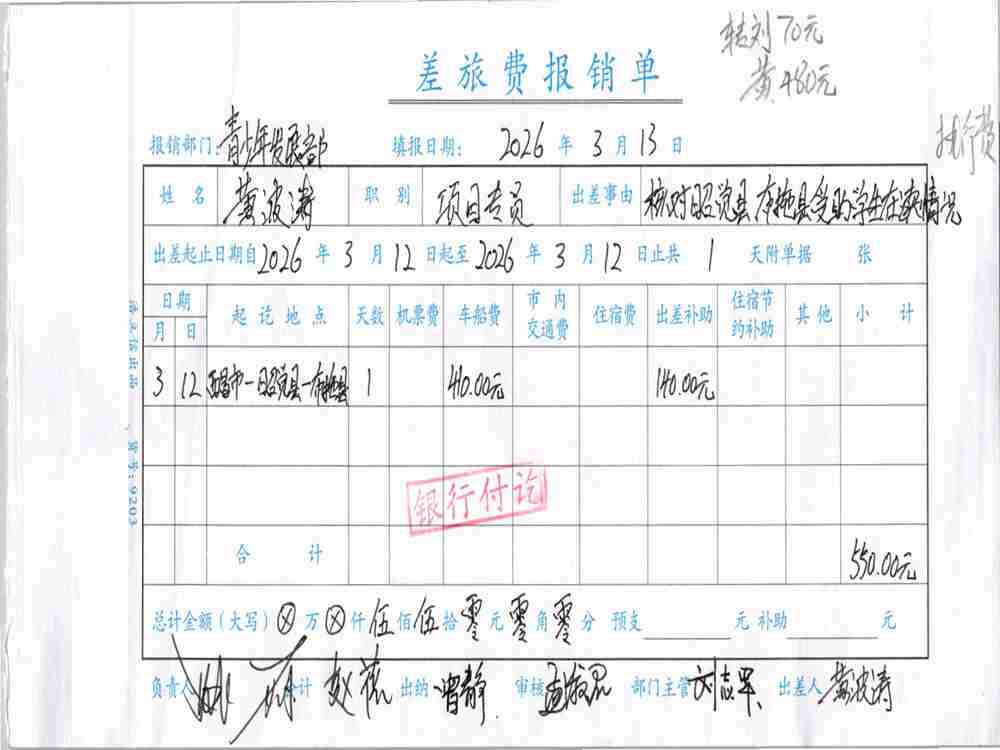 转刘70元
黄480元
差旅费报销单
执行费
报销部门：青少年发展部 填报日期： 2026 年 3 月 13 日
姓名 黄波涛 职别 项目专员 出差事由 核对昭觉县、布拖县受助学生在读情况
出差起止日期自 2026 年 3 月 12 日起至 2026 年 3 月 12 日止共 1 天附单据 张
日期 起讫地点 天数 机票费 车船费 市内交通费 住宿费 出差补助 住宿节约补助 其他 小计
月 日
3 12 西昌市—昭觉县—布拖县 1 410.00元 140.00元
银行付讫
合计 550.00元
总计金额（大写）⊗万⊗仟伍佰伍拾零元零角零分 预支 元 补助 元
负责人 会计 赵 出纳 曾静 审核 部门主管 刘志军 出差人 黄波涛
货号：9203